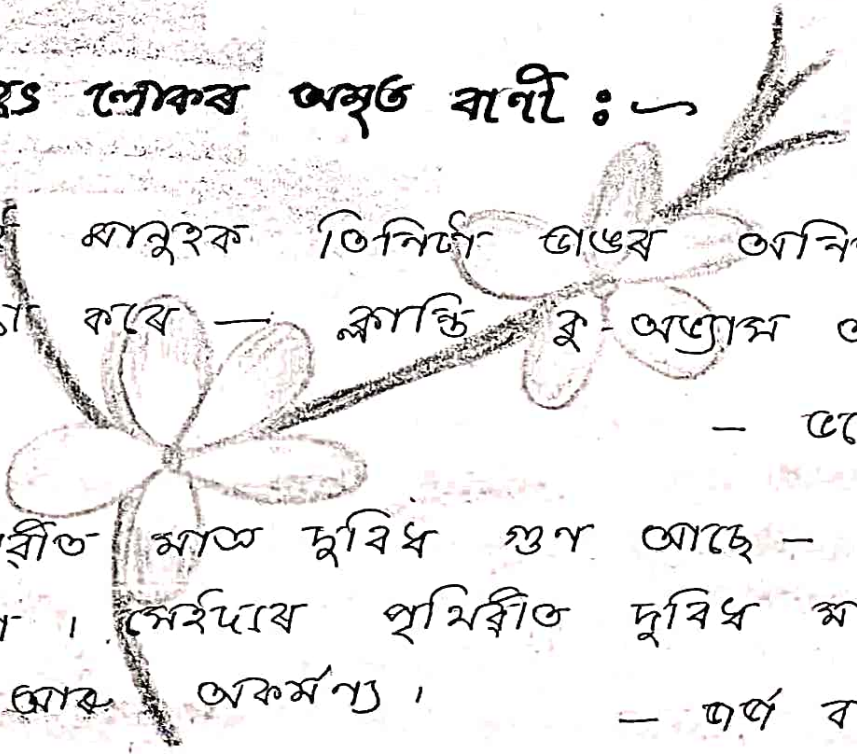 লোকৰ অমৃত বাণী :—
মানুহক তিনিটা ডাঙৰ
কৰে — ক্লান্তি কু-অভ্যাস
মাত্ৰ দুবিধ গুণ আছে —
। সেইদৰে পৃথিৱীত দুবিধ
আৰু অকৰ্মণ্য ।